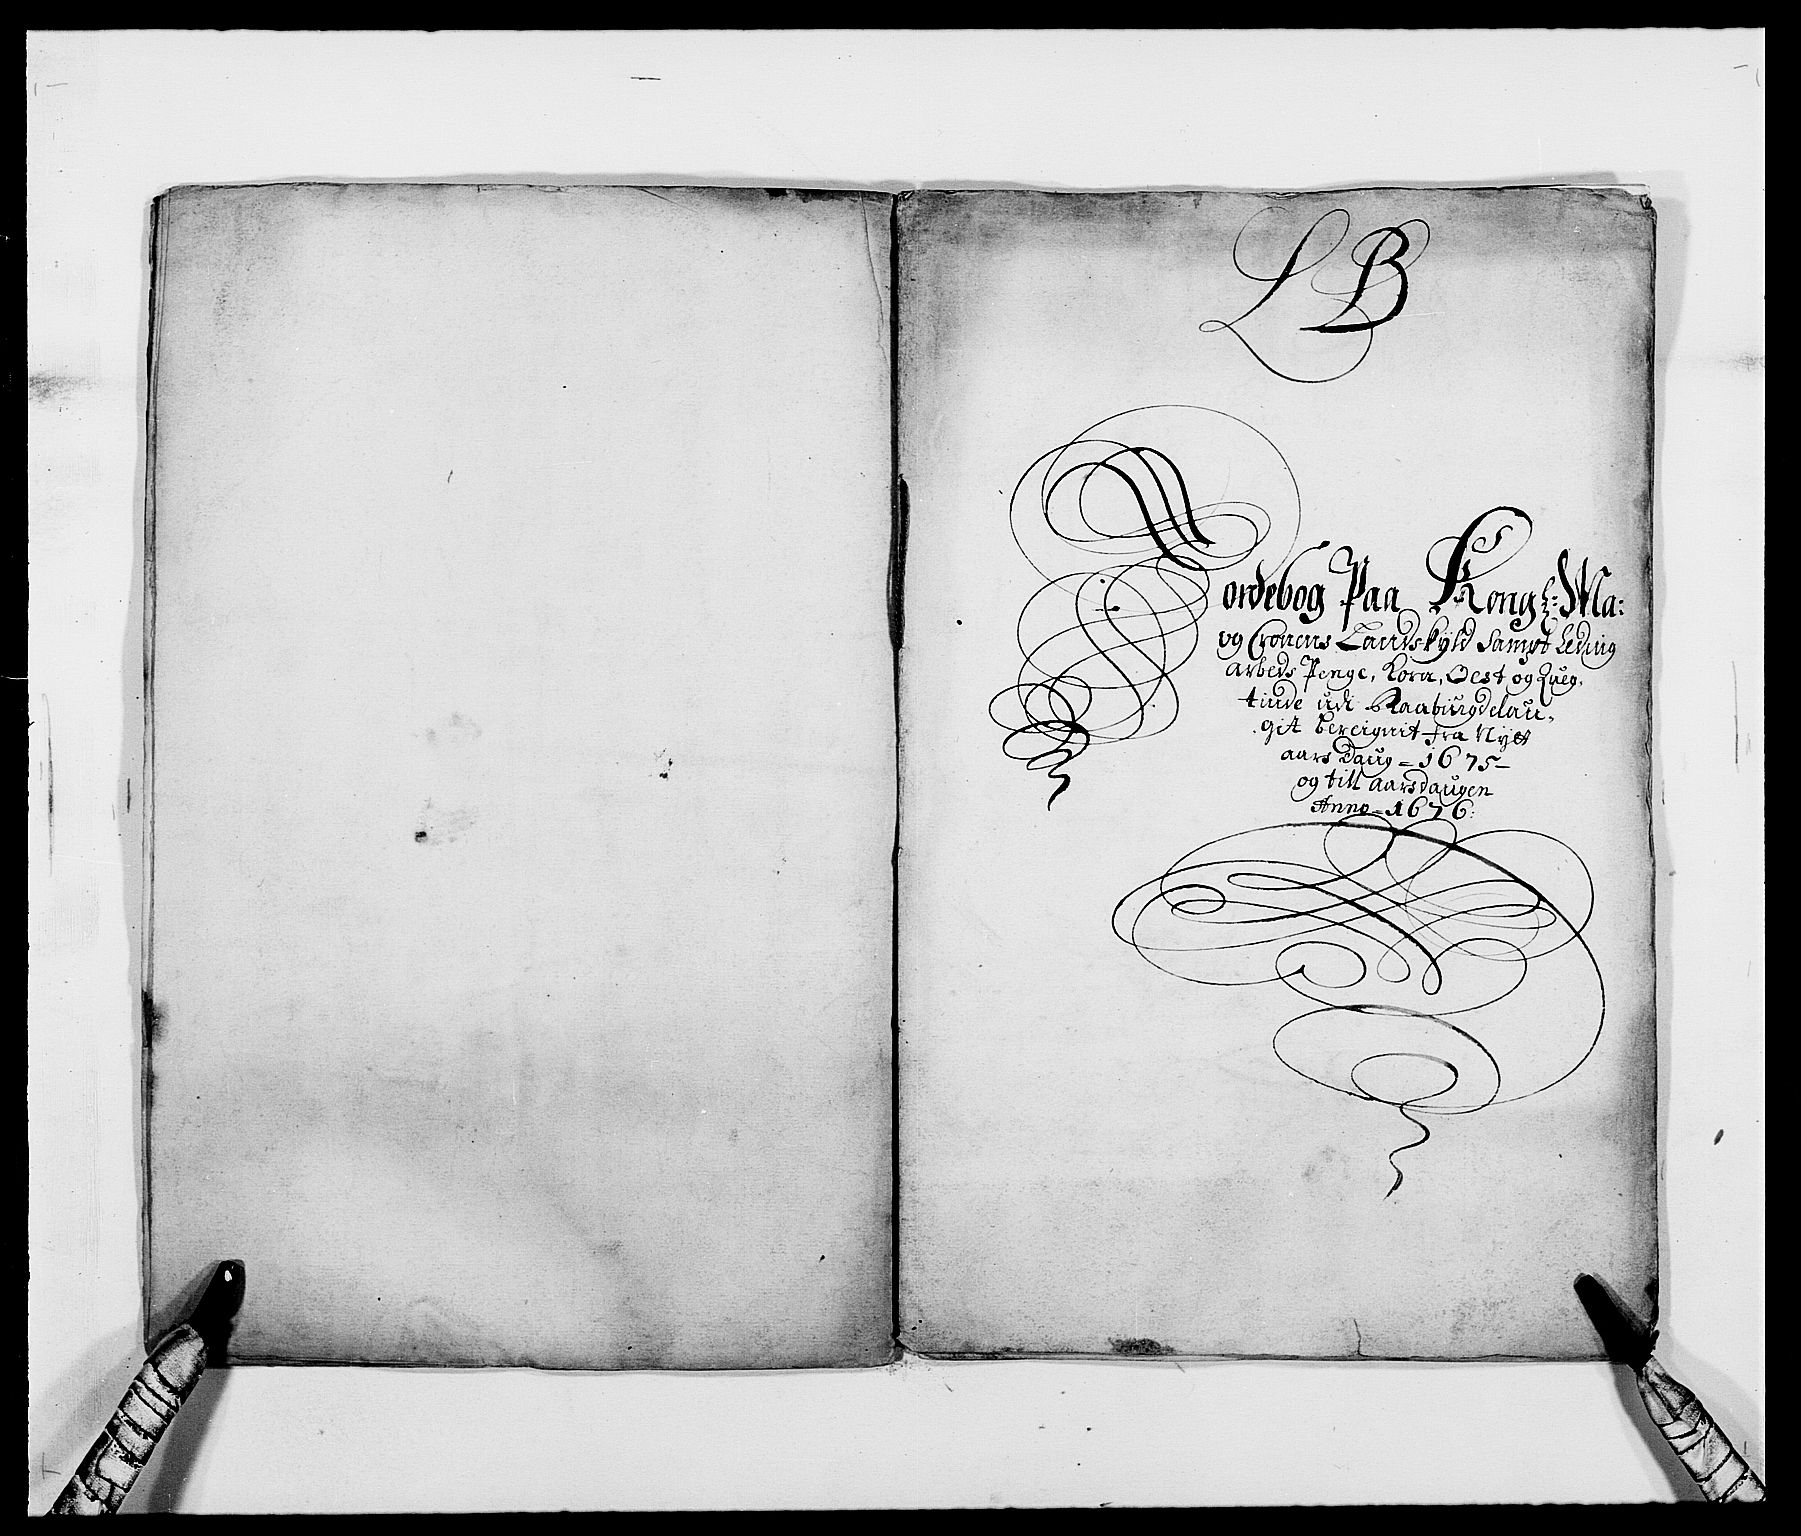 LB
Jordebog Paa Kongl: Ma:
og Cronens Landskyld Sampt Leding
arbeds Penge, Korn, Oest og Queg,
tinde udi Raabiugdelau,
git bereignit fra Nytt
aars Daug = 1675 =
og till aarsdaugen
Anno = 1676: